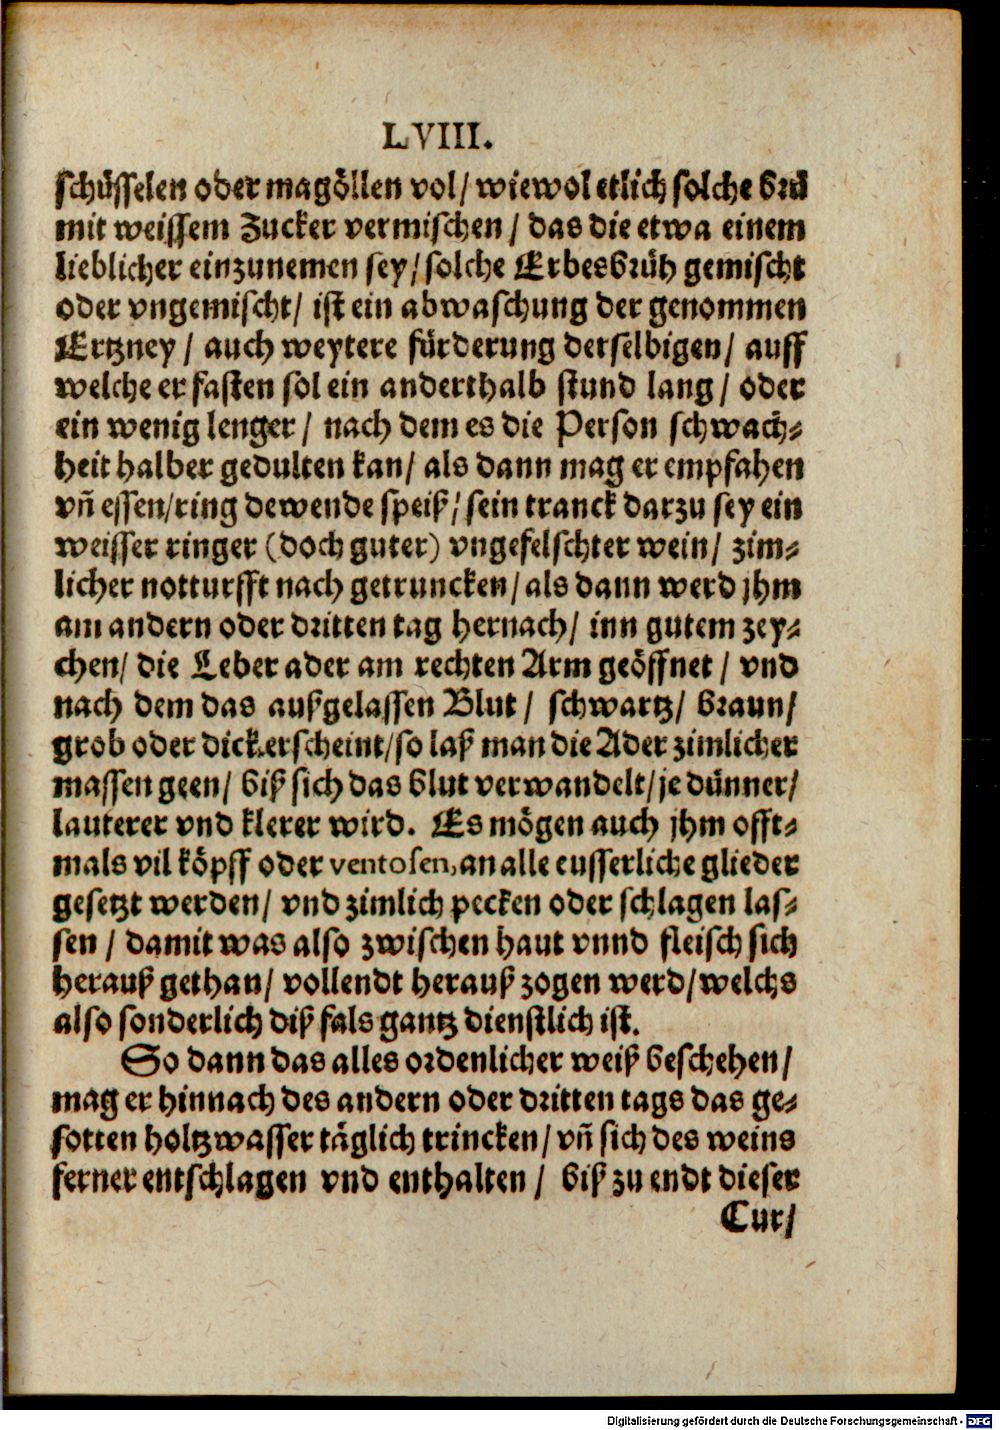 LVIII.
schüsselen oder magöllen vol/ wiewol etlich solche brü
mit weissem Zucker vermischen / das die etwa einem
lieblicher einzunemen sey/ solche Erbesbrüh gemischt
oder vngemischt/ ist ein abwaschung der genommen
Ertzney / auch weytere fürderung derselbigen/ auff
welche er fasten sol ein anderthalb stund lang/ oder
ein wenig lenger/ nach dem es die Person schwach-
heit halber gedulten kan/ als dann mag er empfahen
vñ essen/ring dewende speiß/ sein tranck darzu sey ein
weisser ringer (doch guter) vngefelschter wein/ zim-
licher notturfft nach getruncken/ als dann werd jhm
am andern oder dritten tag hernach/ inn gutem zey-
chen/ die Leber ader am rechten Arm geöffnet/ vnd
nach dem das außgelassen Blut/ schwartz/ braun/
grob oder dick erscheint/so laß man die Ader zimlicher
massen geen/ biß sich das blut verwandelt/je dünner/
lauterer vnd klerer wird. Es mögen auch jhm offt-
mals vil köpff oder ventosen, an alle eusserliche glieder
gesetzt werden/ vnd zimlich pecken oder schlagen las-
sen / damit was also zwischen haut vnnd fleisch sich
herauß gethan/ vollendt herauß zogen werd/welchs
also sonderlich diß fals gantz dienstlich ist.
So dann das alles ordenlicher weiß beschehen/
mag er hinnach des andern oder dritten tags das ge-
sotten holtzwasser täglich trincken/ vñ sich des weins
ferner entschlagen vnd enthalten / biß zu endt dieser
Cur/
Digitalisierung gefördert durch die Deutsche Forschungsgemeinschaft - DFG